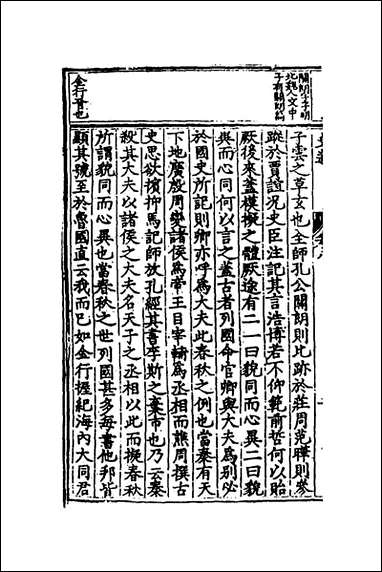 關朗字子明
北魏人文中
子有關朗篇
金行晉也
子雲之草玄也全師孔公關朗則比跡於莊周范曄則參
蹤於賈誼况史臣注記其言浩博若不仰範前哲何以貽
厥後來蓋模擬之體厥途有二一曰貌同而心異二曰貌
異而心同何以言之蓋古者列國命官卿與大夫爲别必
於國史所記則卿亦呼爲大夫此春秋之例也當秦有天
下地廣殷周變諸侯爲帝王目宰輔爲丞相而譙周撰古
史思欲擯抑馬記師放孔經其書李斯之棄市也乃云秦
殺其大夫以諸侯之大夫名天子之丞相以此而擬春秋
所謂貌同而心異也當春秋之世列國甚多每書他邦皆
顯其號至於魯國直云我而已如金行握紀海內大同君